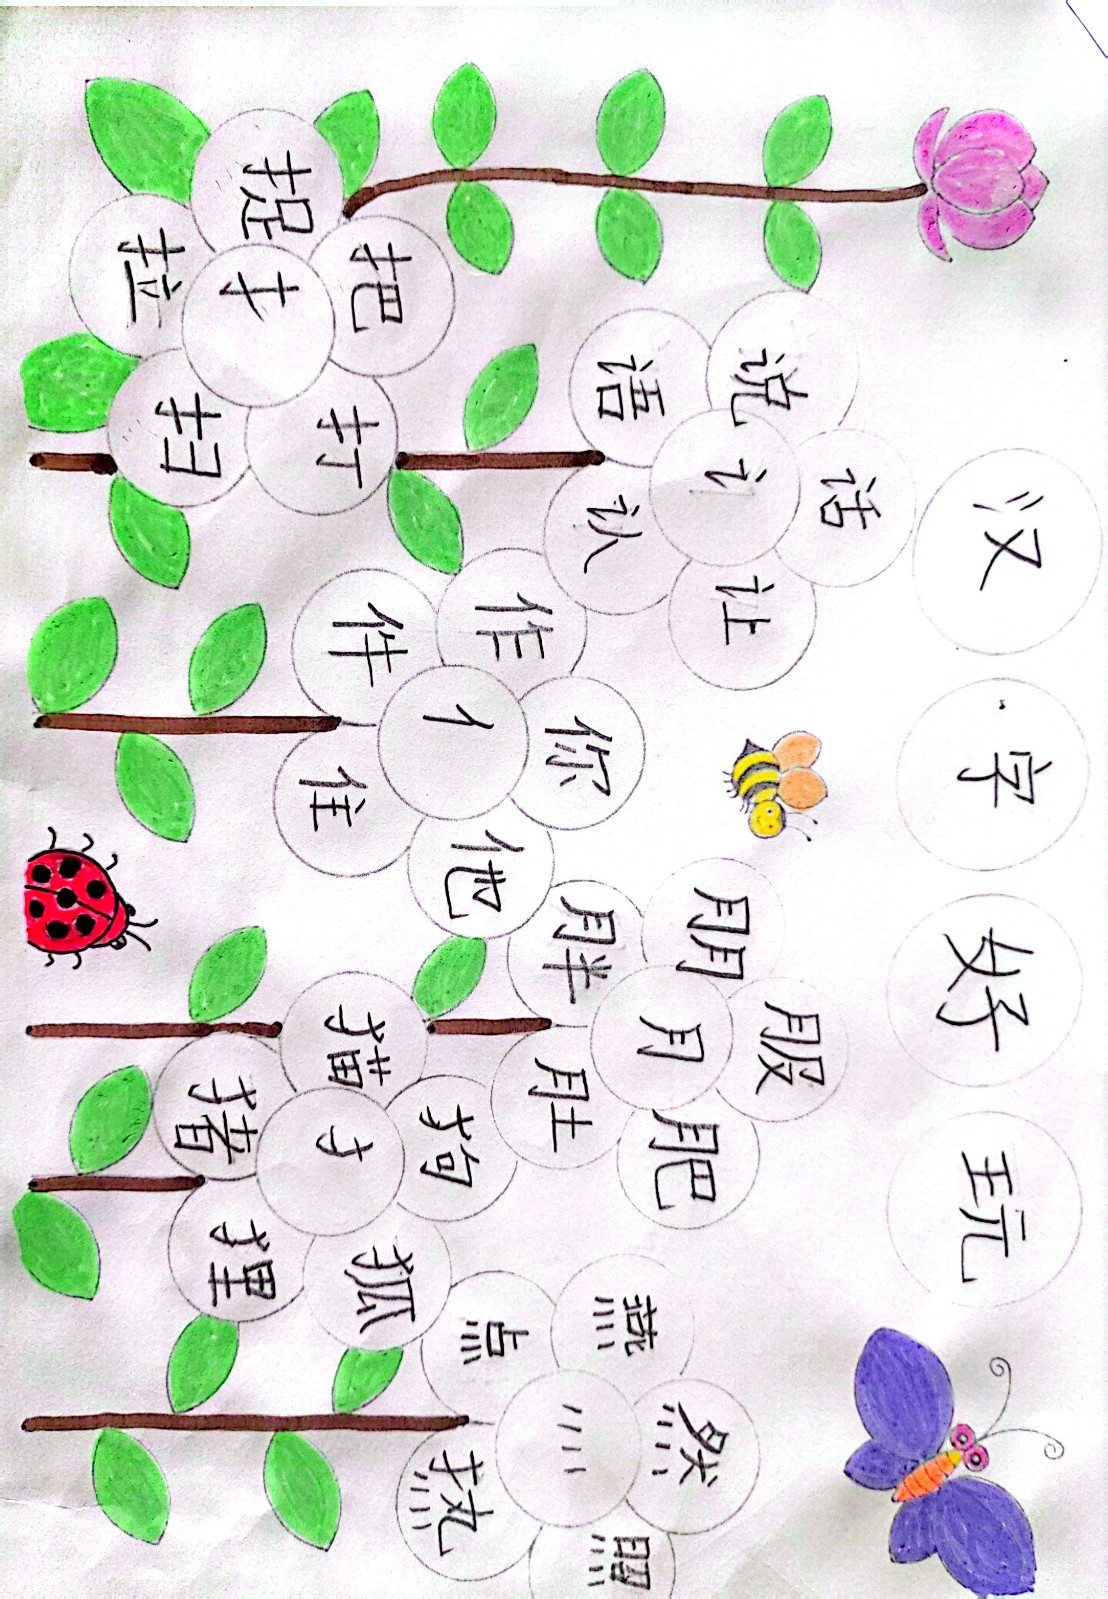 汉字好玩
扌
捉
把
打
扫
拉
讠
说
话
让
认
语
亻
作
你
他
住
件
月
朋
服
肥
肚
胖
犭
猫
狗
狐
狸
猪
灬
燕
然
照
热
点